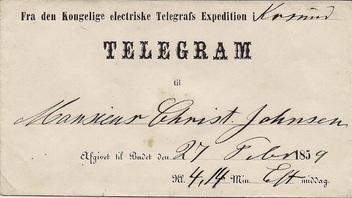 Fra den Kongelige electriske Telegrafs Expedition i Krsund
TELEGRAM
til
Monsieur Christ. Johnsen
Afgivet til Budet den 27 Febr 1859
Kl. 4,14 Min. Eft middag.